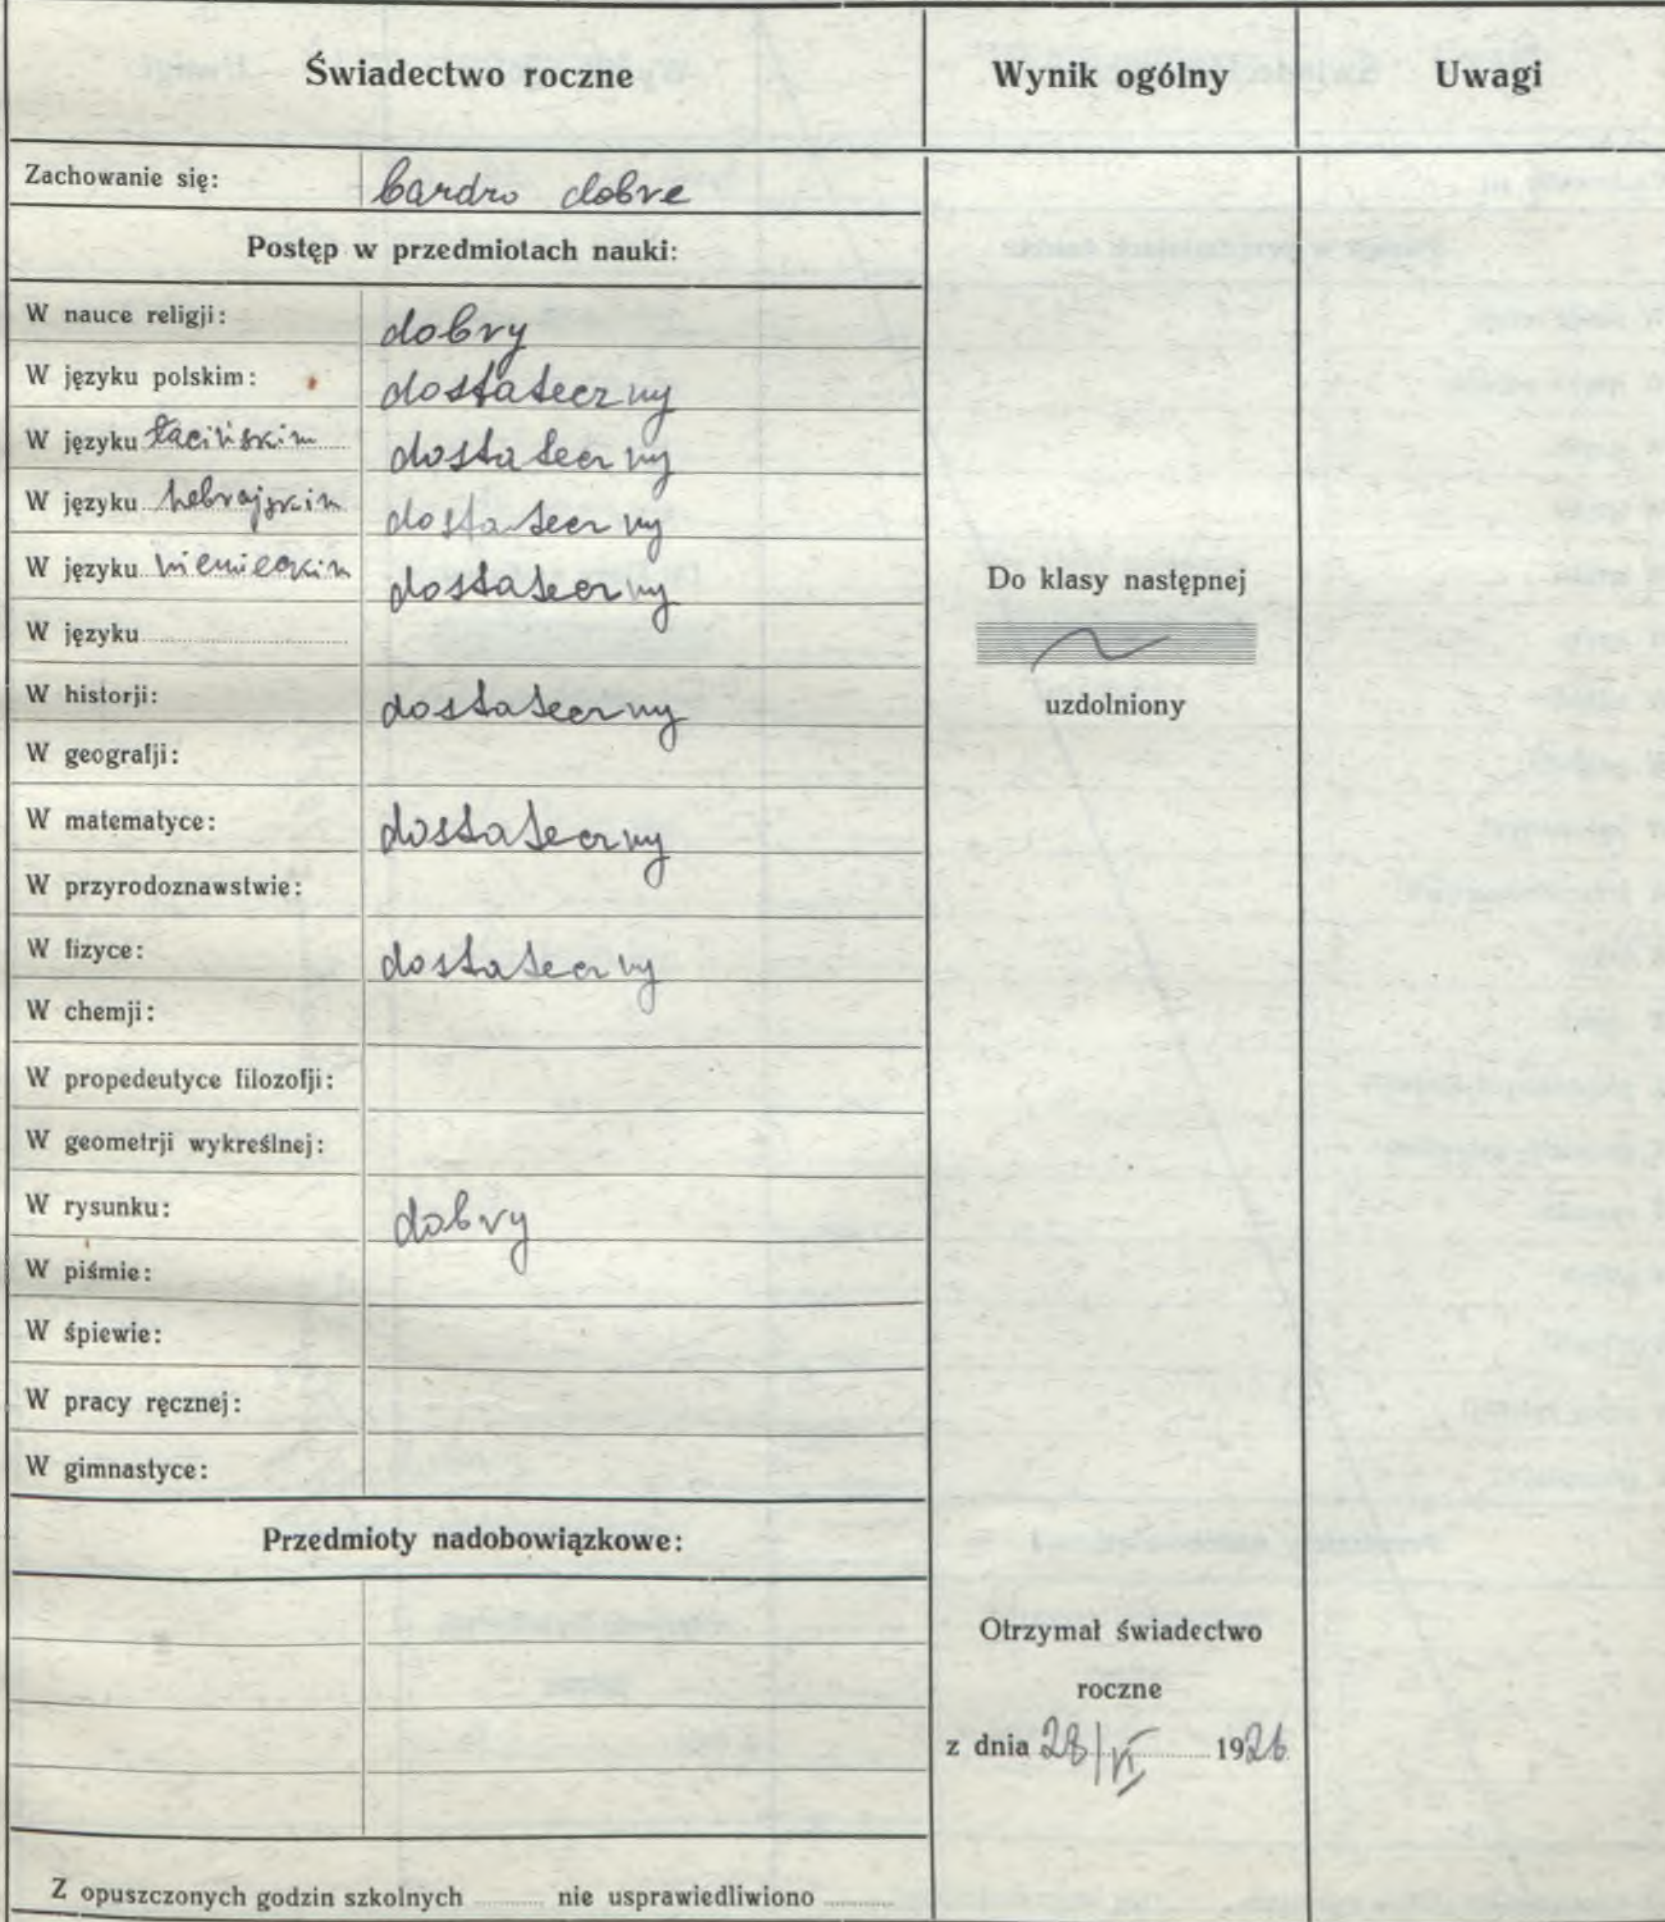 Świadectwo roczne Wynik ogólny Uwagi
Zachowanie się: bardzo dobre
Postęp w przedmiotach nauki:
W nauce religji: dobry
W języku polskim: dostateczny
W języku łacińskim dostateczny
W języku hebrajskim dostateczny
W języku niemieckim dostateczny
W języku
W historji: dostateczny
W geografji:
W matematyce: dostateczny
W przyrodoznawstwie:
W fizyce: dostateczny
W chemji:
W propedeutyce filozofji:
W geometrji wykreślnej:
W rysunku: dobry
W piśmie:
W śpiewie:
W pracy ręcznej:
W gimnastyce:
Przedmioty nadobowiązkowe:
Z opuszczonych godzin szkolnych nie usprawiedliwiono
Do klasy następnej
uzdolniony
Otrzymał świadectwo
roczne
z dnia 28/VI 1926